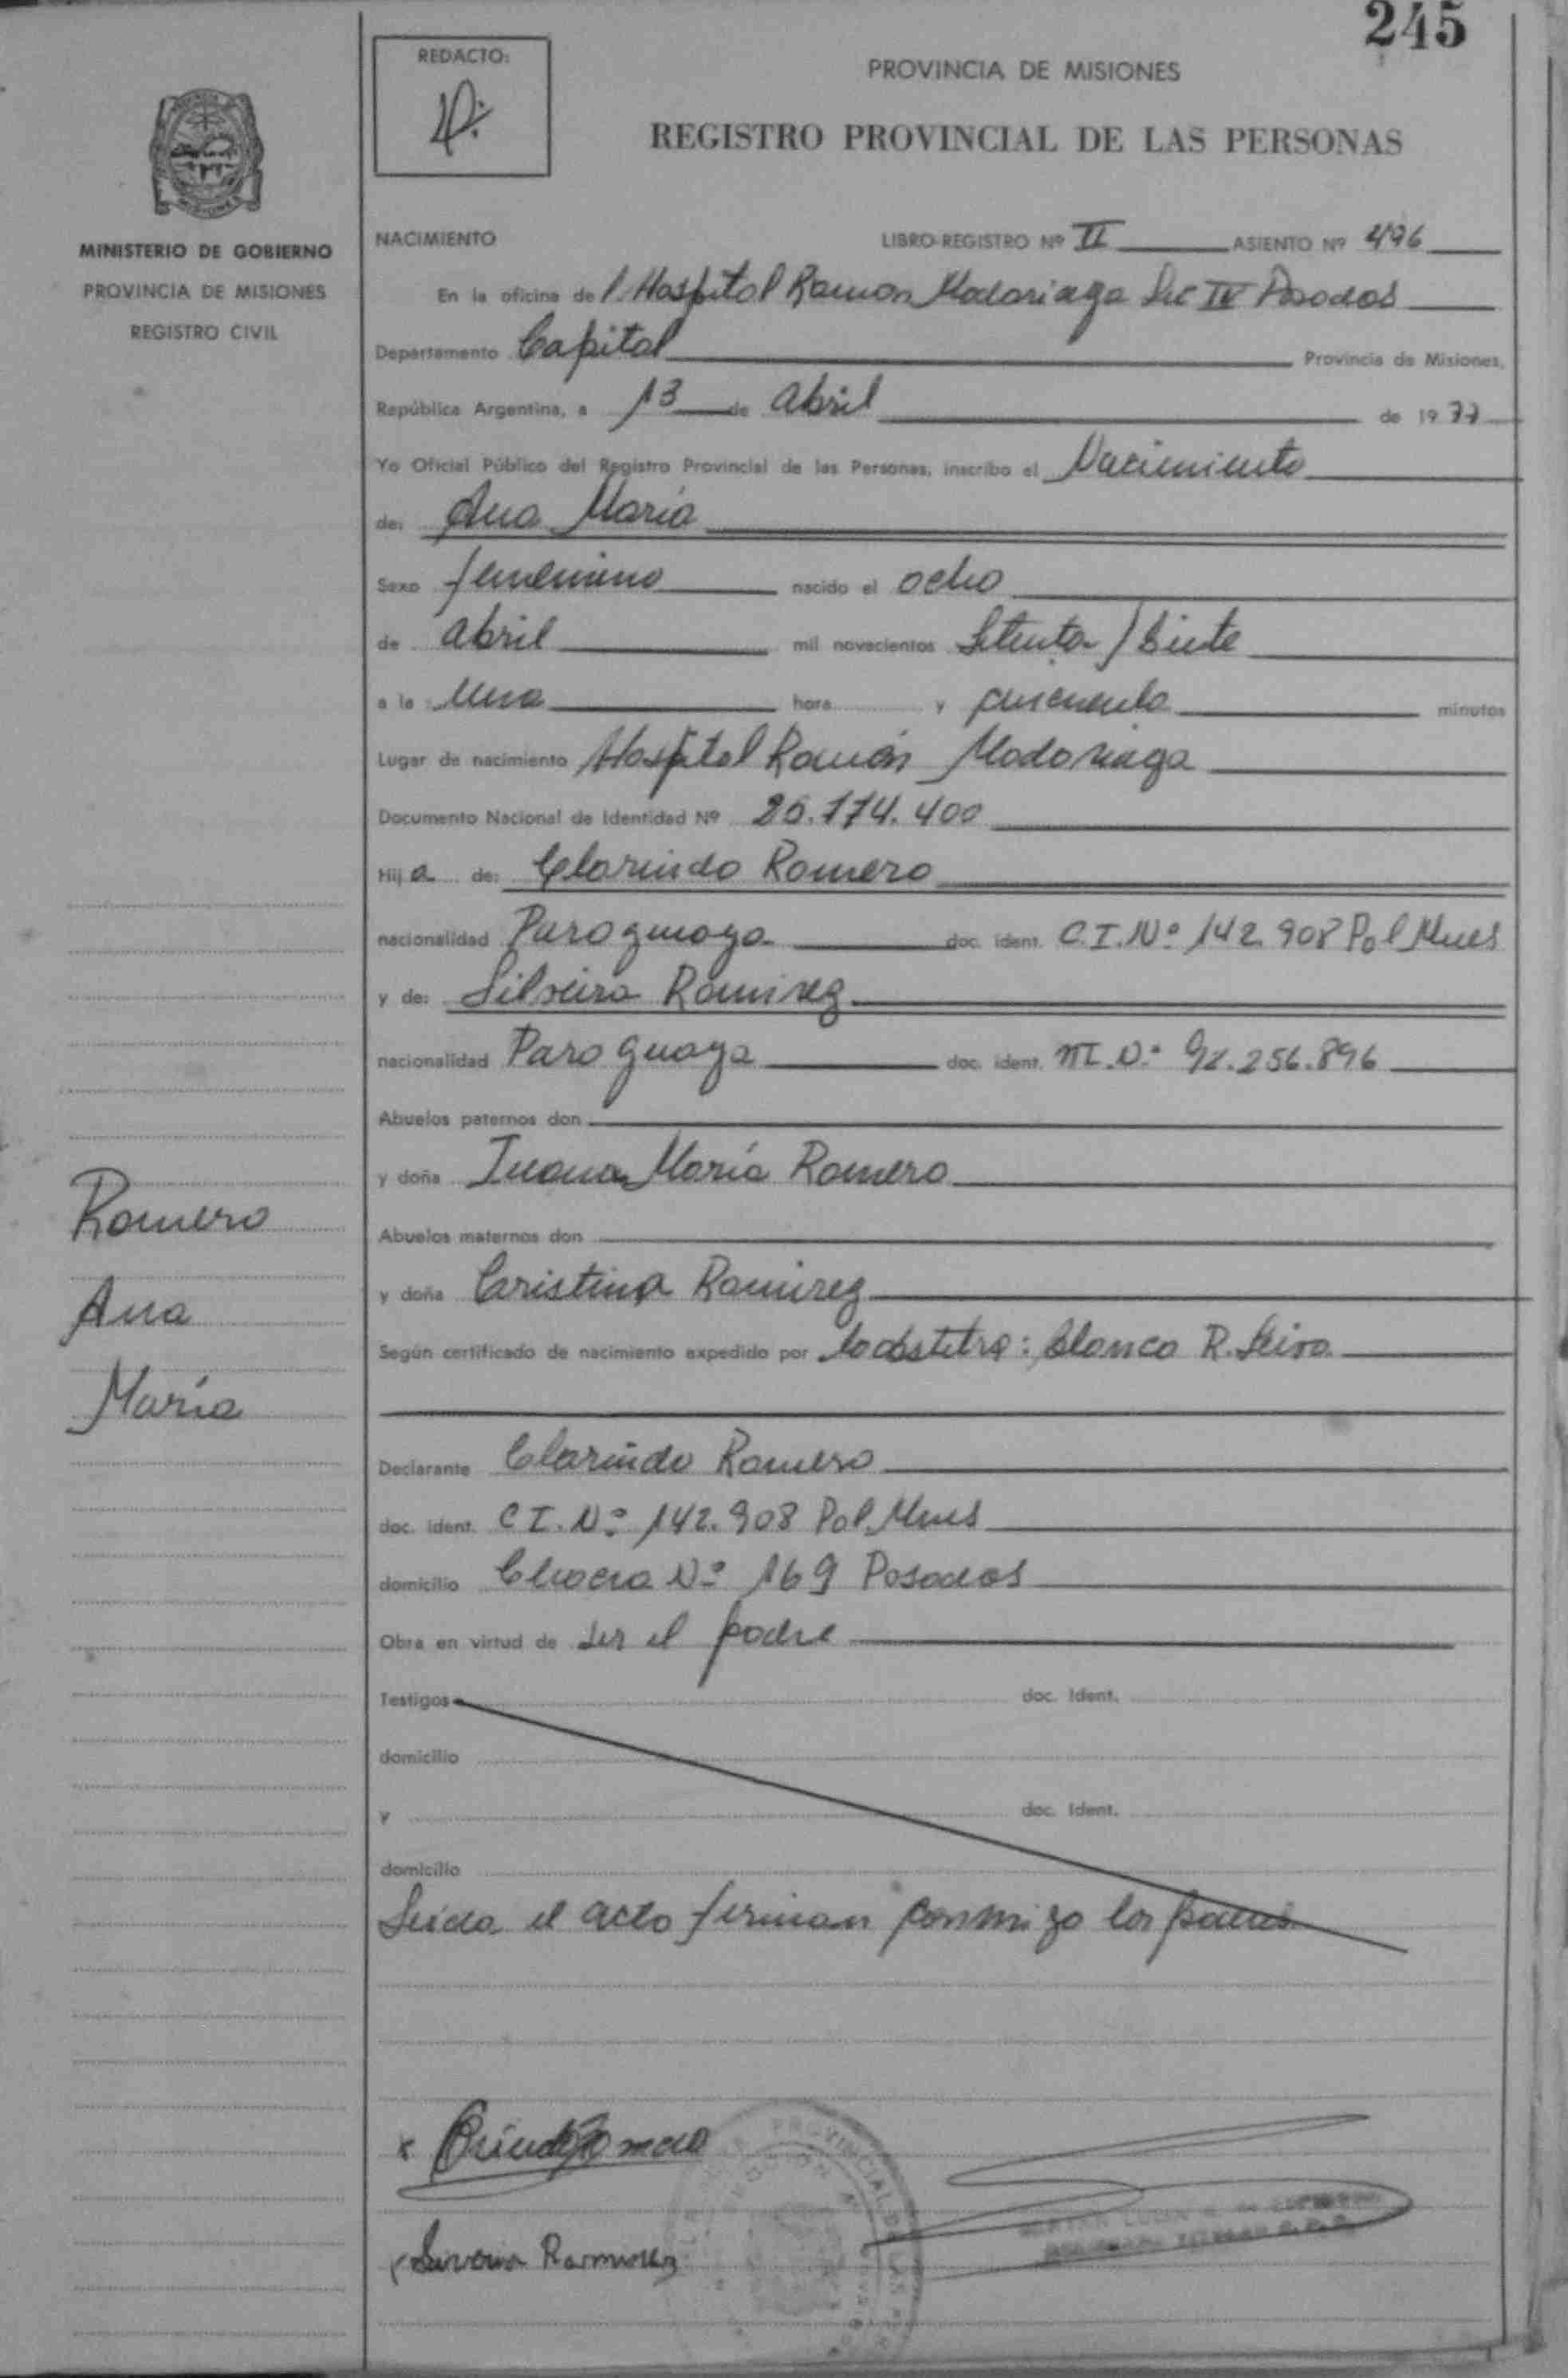 245
REDACTO:
PROVINCIA DE MISIONES
REGISTRO PROVINCIAL DE LAS PERSONAS
MINISTERIO DE GOBIERNO
PROVINCIA DE MISIONES
REGISTRO CIVIL
NACIMIENTO LIBRO-REGISTRO Nº II ASIENTO Nº 496
En la oficina del Hospital Ramon Madariaga Sec IV Posadas
Departamento Capital Provincia de Misiones,
República Argentina, a 13 de Abril de 1977
Yo Oficial Público del Registro Provincial de las Personas, inscribo el Nacimiento
de: Ana María
Sexo femenino nacido el ocho
de abril mil novecientos Setenta / Siete
a la Una hora y cincuenta minutos
Lugar de nacimiento Hospital Ramón Madariaga
Documento Nacional de Identidad Nº 26.174.400
Hija de: Clarindo Romero
nacionalidad Paraguaya doc. ident. C.I.Nº 142.908 Pol Mnes
y de: Silveira Ramirez
nacionalidad Paraguaya doc. ident. M.I.Nº 92.256.896
Abuelos paternos don
y doña Juana María Romero
Abuelos maternos don
y doña Cristina Ramirez
Según certificado de nacimiento expedido por la obstetra: Blanca R. Leiva
Romero
Ana
María
Declarante Clarindo Romero
doc. ident. C I. Nº 142.908 Pol. Mnes
domicilio Chacra Nº 169 Posadas
Obra en virtud de ser el padre
Testigos doc. Ident.
domicilio
y doc. Ident.
domicilio
Leida el acta firman conmigo los padres